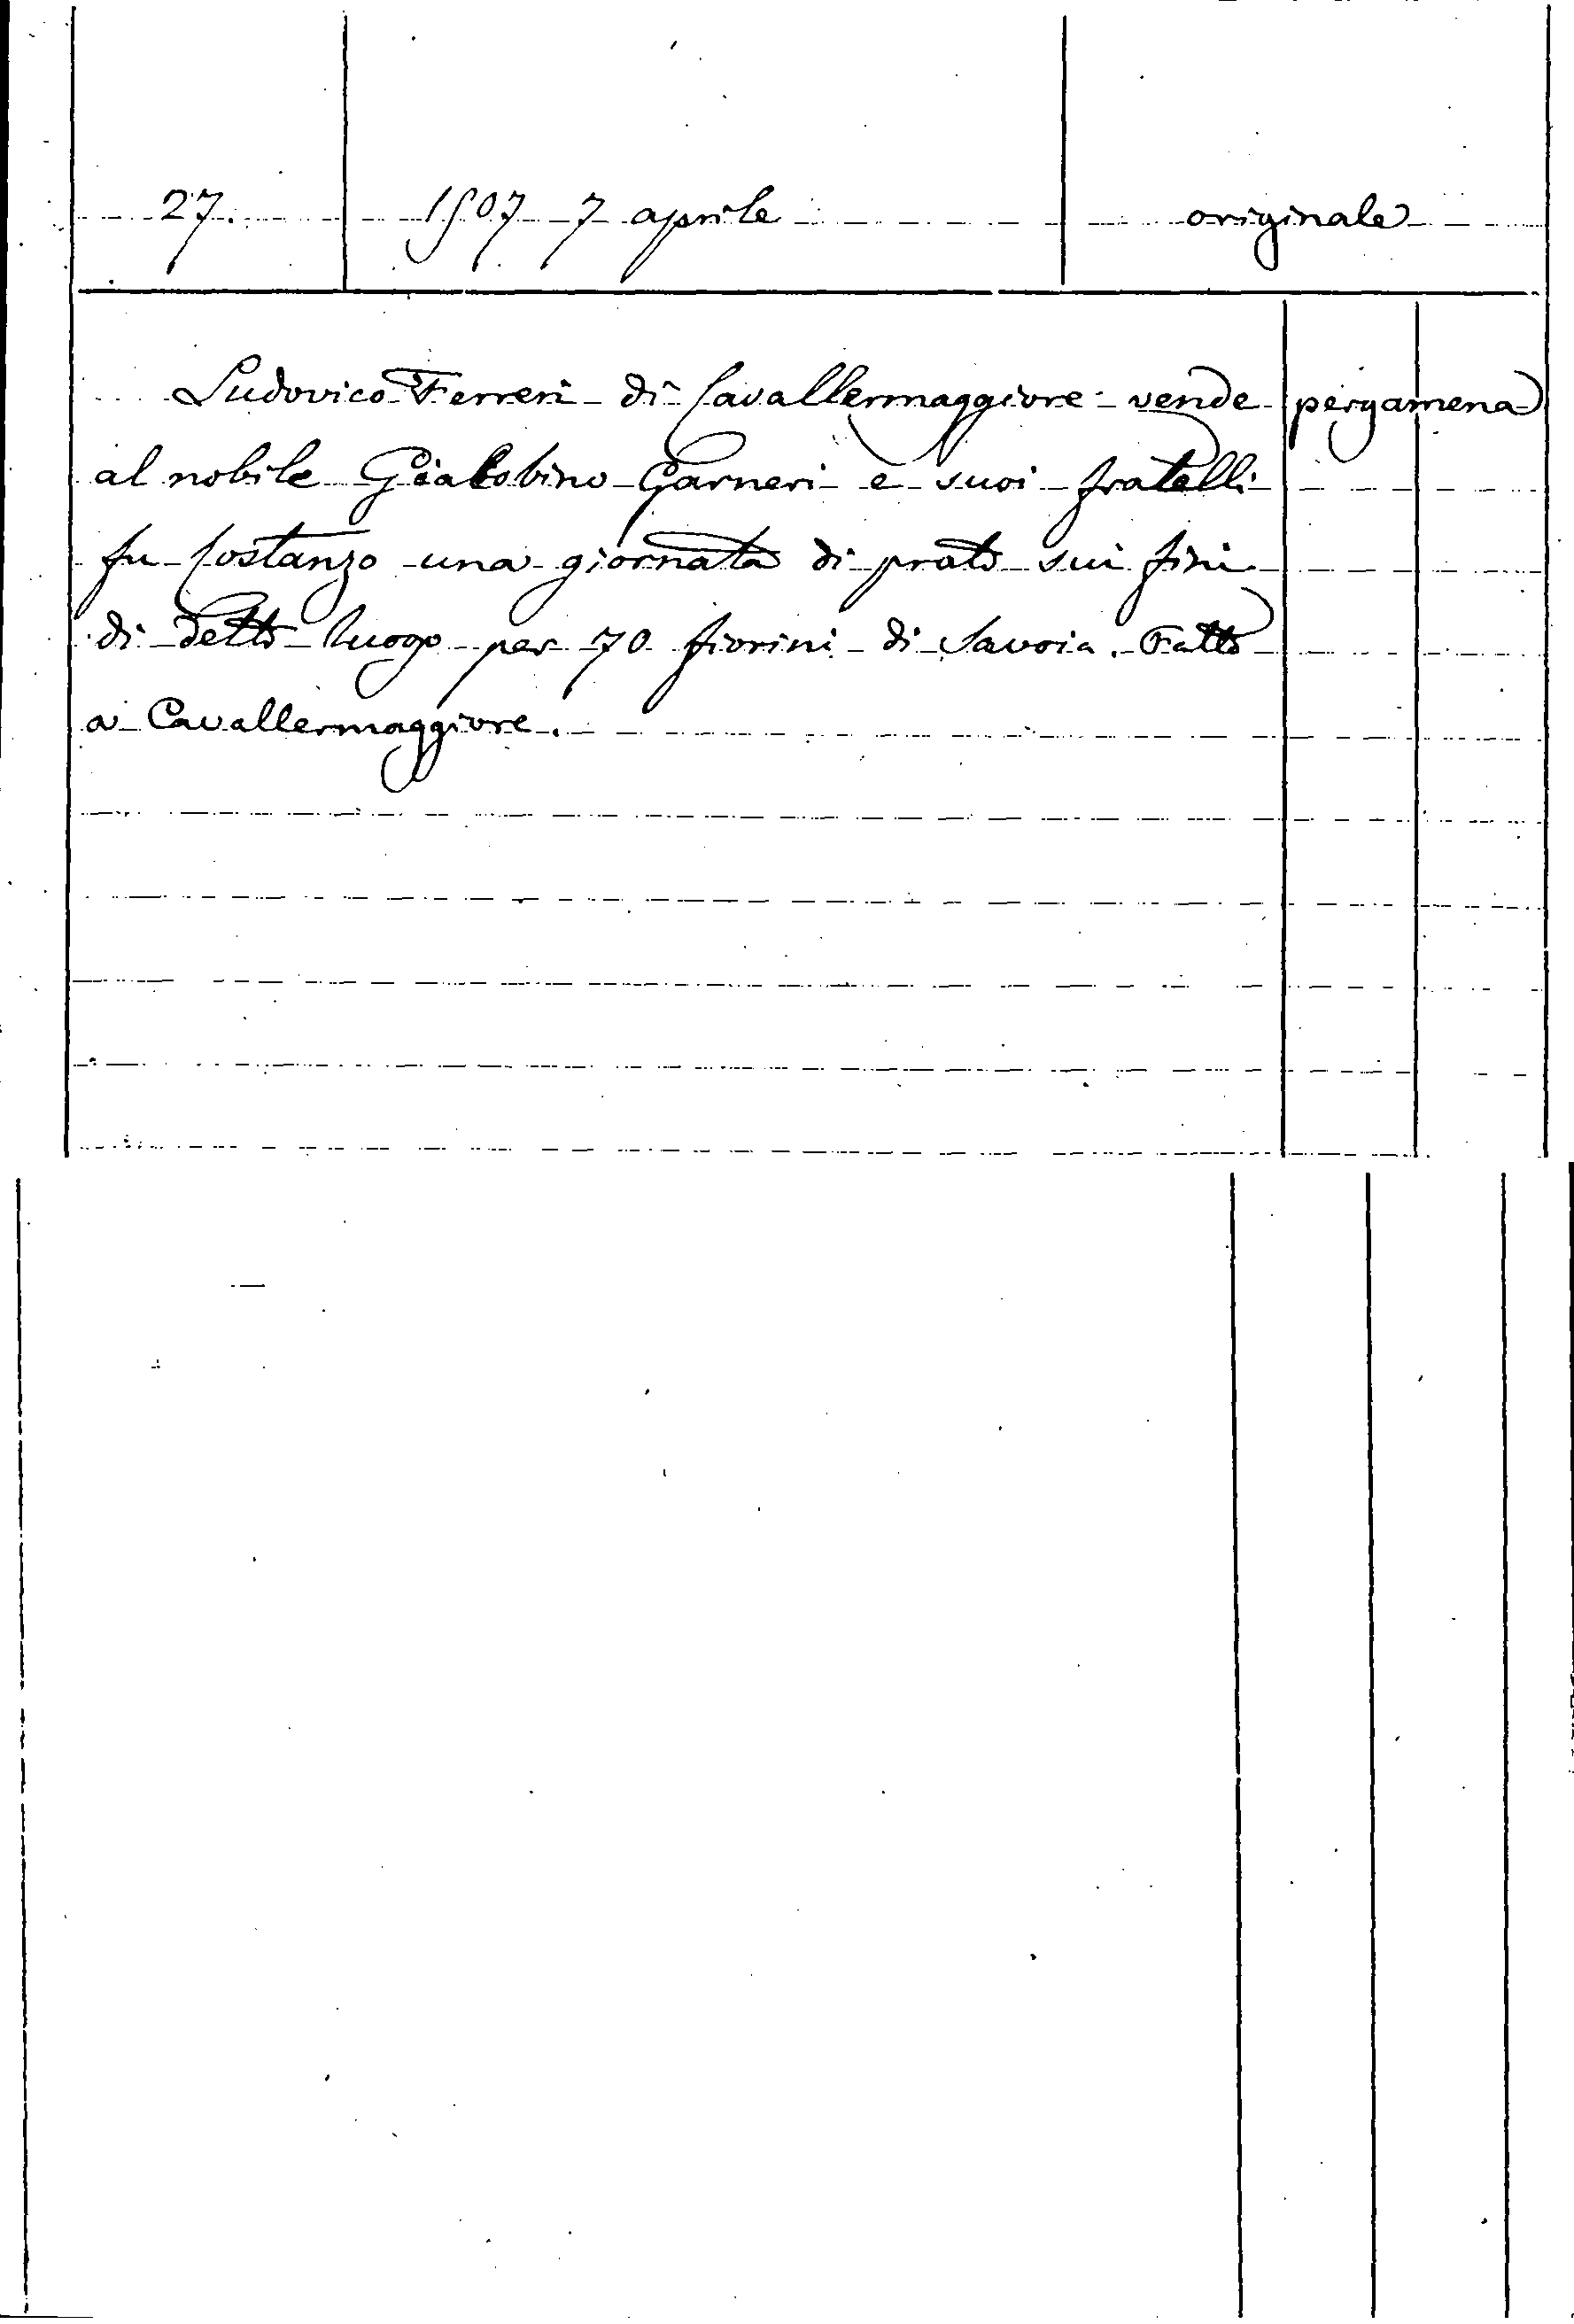 27. 1507 7 aprile originale
Ludovico Ferreri di Cavallermaggiore vende pergamena
al nobile Giacobino Garneri e suoi fratelli
fu Costanzo una giornata di prato sui fini
di detto luogo per 70 fiorini di Savoia. Fatto
a Cavallermaggiore.